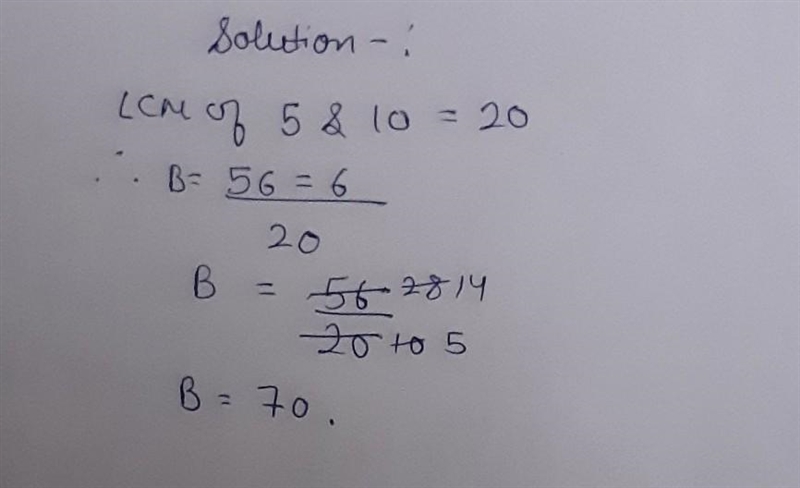 Solution - :
LCM of 5 & 10 = 20
∴ B = 56 = 6
20
B = 56 28 14
20 10 5
B = 70.